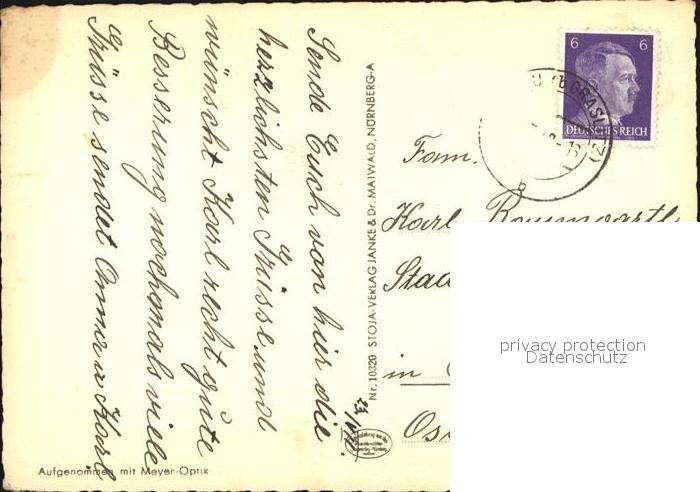 Sende Euch von hier die
herzlichsten Grüsse und
wünscht Karl recht gute
Besserung nochmals viele
Grüsse sendet Anna u Karl
Nr. 10320 STOJA-VERLAG JANKE & Dr. MAIWALD, NÜRNBERG-A
Aufgenommen mit Meyer-Optik
6 6
DEUTSCHES REICH
Fam.
Karl
in
privacy protection
Datenschutz